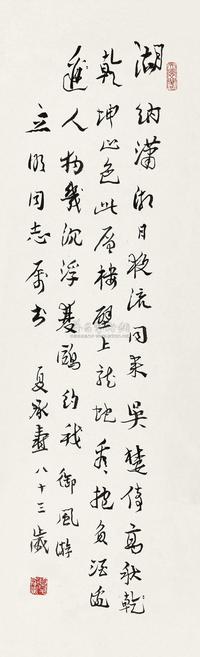 湖纳潇湘日夜流同来吴楚倚高秋乾
乾坤一色此层楼壁上龙蛇秀抱负酒边
人物几沉浮鸥约我御风游
立明同志属书 夏承焘八十三岁